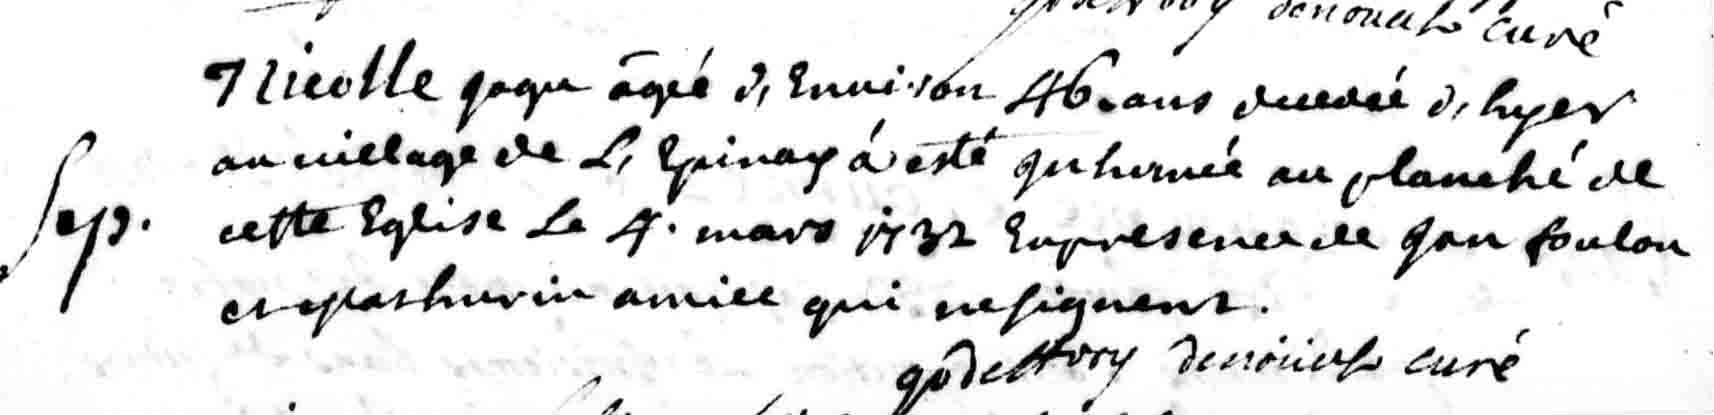 curé
Nicolle âgée d'Environ 46. ans decedée d'hyer
au village de L'Epinay à esté Inhumée au planché de
Sep. cette Eglise Le 4. mars 1732 En presence de Jan foulon
et mathurin amice qui ne signent.
godeffroy curé